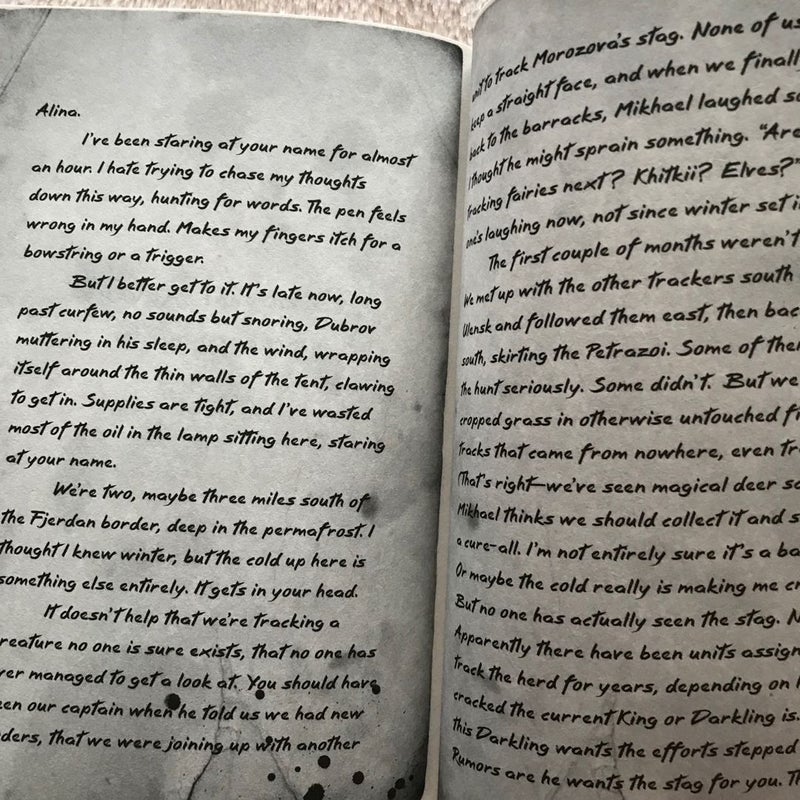 Alina.
I've been staring at your name for almost
an hour. I hate trying to chase my thoughts
down this way, hunting for words. The pen feels
wrong in my hand. Makes my fingers itch for a
bowstring or a trigger.
But I better get to it. It's late now, long
past curfew, no sounds but snoring, Dubrov
muttering in his sleep, and the wind, wrapping
itself around the thin walls of the tent, clawing
to get in. Supplies are tight, and I've wasted
most of the oil in the lamp sitting here, staring
at your name.
We're two, maybe three miles south of
the Fjerdan border, deep in the permafrost. I
thought I knew winter, but the cold up here is
something else entirely. It gets in your head.
It doesn't help that we're tracking a
reature no one is sure exists, that no one has
ver managed to get a look at. You should have
en our captain when he told us we had new
ders, that we were joining up with another
unit to track Morozova's stag. None of us
keep a straight face, and when we finall
back to the barracks, Mikhael laughed so
I thought he might sprain something. "Are
tracking fairies next? Khitkii? Elves?"
one's laughing now, not since winter set i
The first couple of months weren't
We met up with the other trackers south
Ulensk and followed them east, then bac
south, skirting the Petrazoi. Some of the
the hunt seriously. Some didn't. But we
cropped grass in otherwise untouched fi
tracks that came from nowhere, even tr
(That's right—we've seen magical deer sc
Mikhael thinks we should collect it and s
a cure-all. I'm not entirely sure it's a ba
Or maybe the cold really is making me cr
But no one has actually seen the stag. N
Apparently there have been units assign
track the herd for years, depending on h
cracked the current King or Darkling is.
this Darkling wants the efforts stepped
Rumors are he wants the stag for you. Th